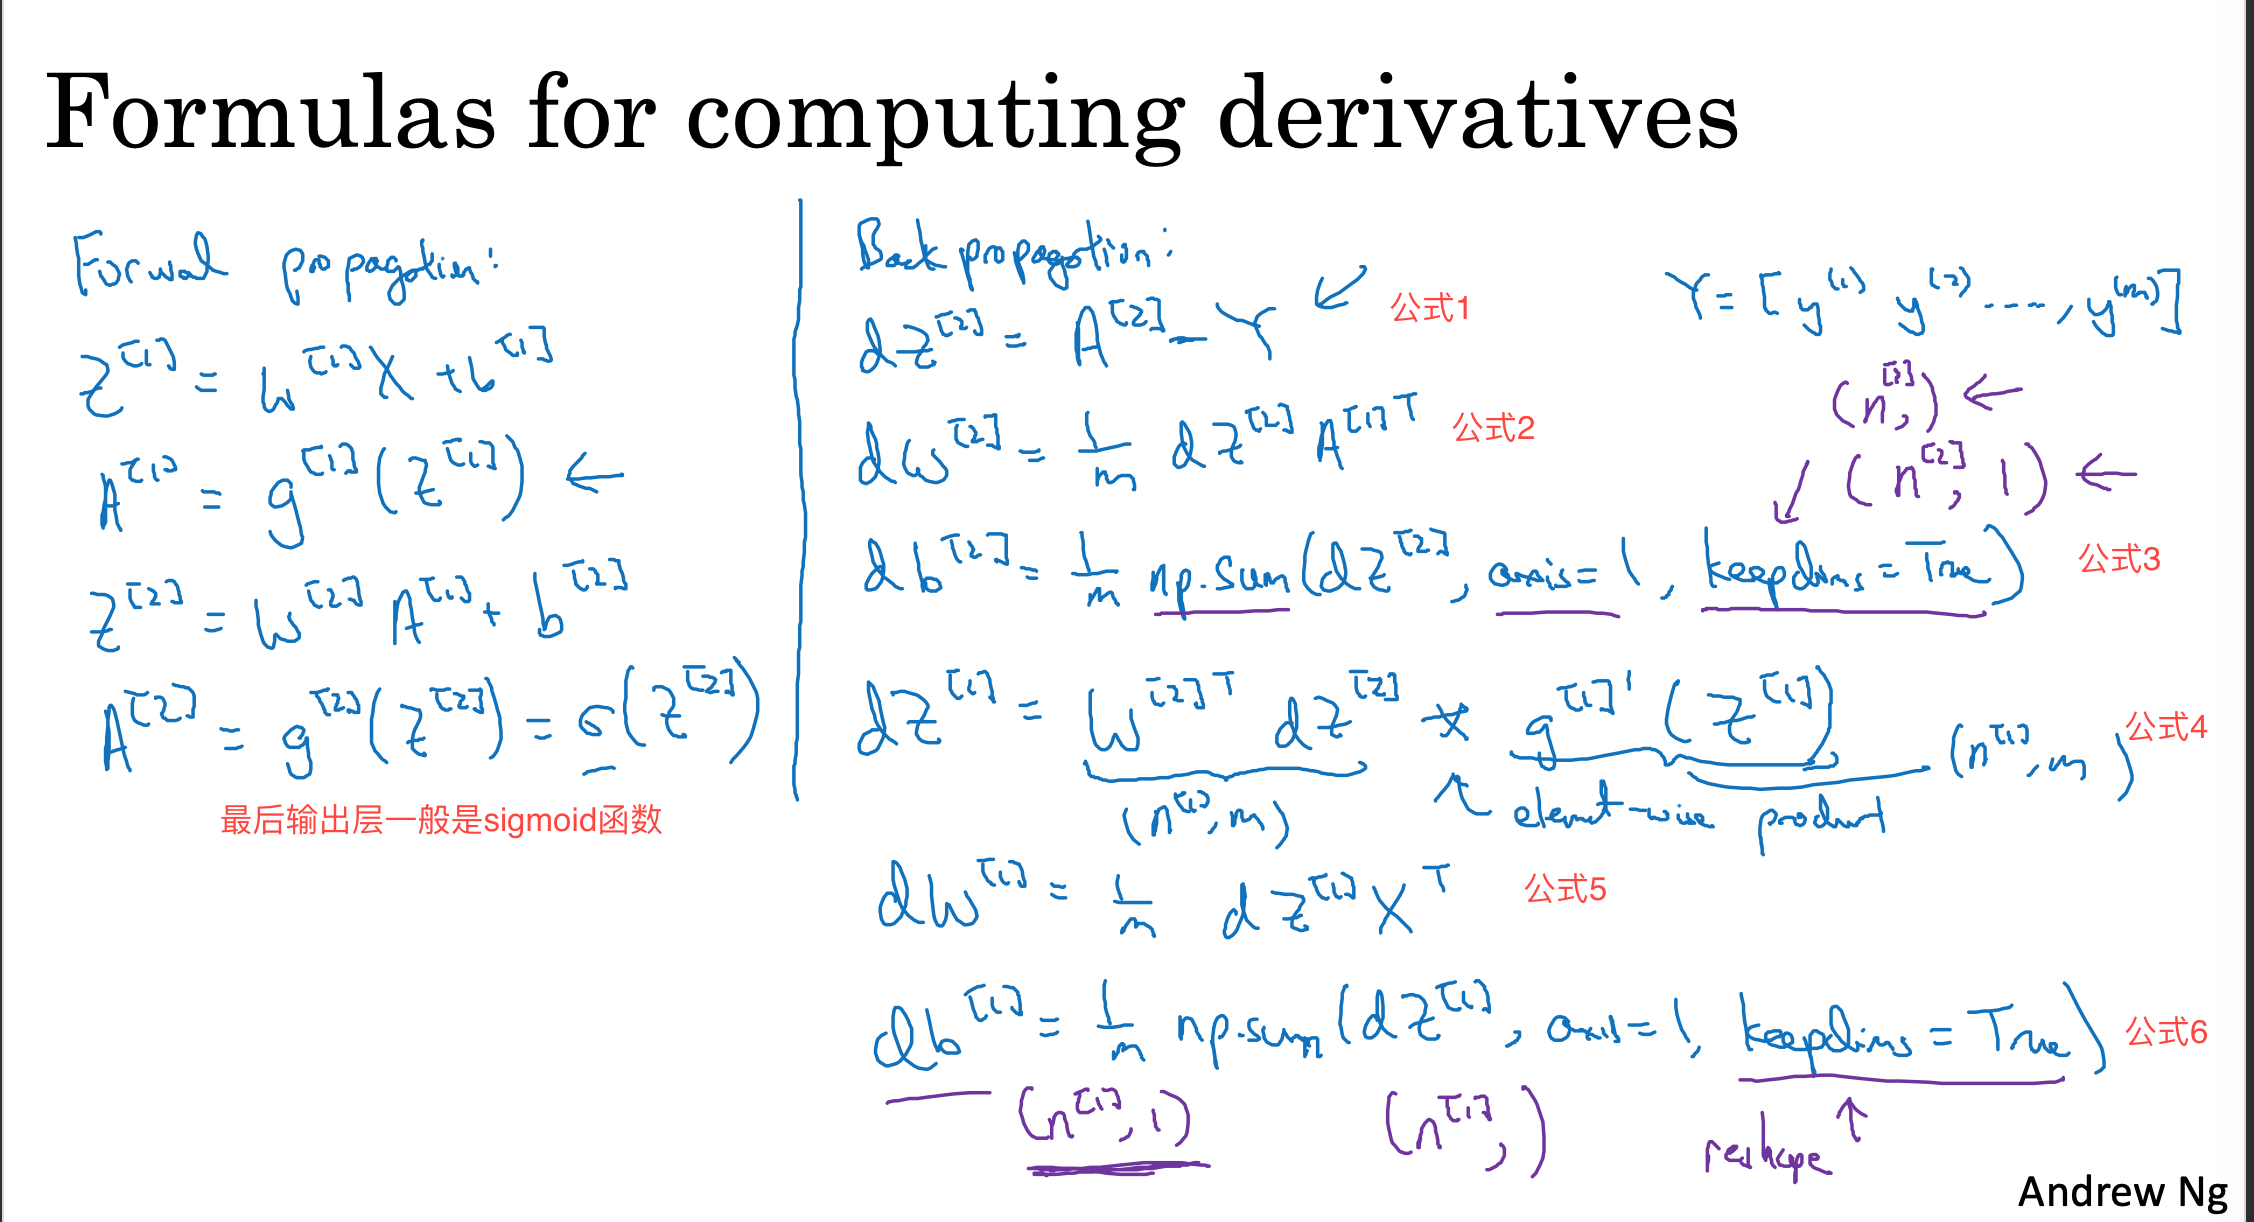 Formulas for computing derivatives
Forwal propagation:
Z^[1] = W^[1] X + b^[1]
A^[1] = g^[1](Z^[1]) ←
Z^[2] = W^[2] A^[1] + b^[2]
A^[2] = g^[2](Z^[2]) = σ(Z^[2])
最后输出层一般是sigmoid函数
Back propagation:
dZ^[2] = A^[2] - Y ↙ 公式1
Y = [y^(1) y^(2) ----, y^(m)]
dW^[2] = 1/m dZ^[2] A^[1]T 公式2
(n^[2],) ←
↙ (n^[2], 1) ←
db^[2] = 1/m np.sum(dZ^[2], axis=1, keepdims=True) 公式3
dZ^[1] = W^[2]T dZ^[2] * g^[1]'(Z^[1]) 公式4
(n^[1], m) ↖ element-wise product (n^[1], m)
dW^[1] = 1/m dZ^[1] X^T 公式5
db^[1] = 1/m np.sum(dZ^[1], axis=1, keepdims=True) 公式6
(n^[1], 1) (n^[1],) reshape ↑
Andrew Ng